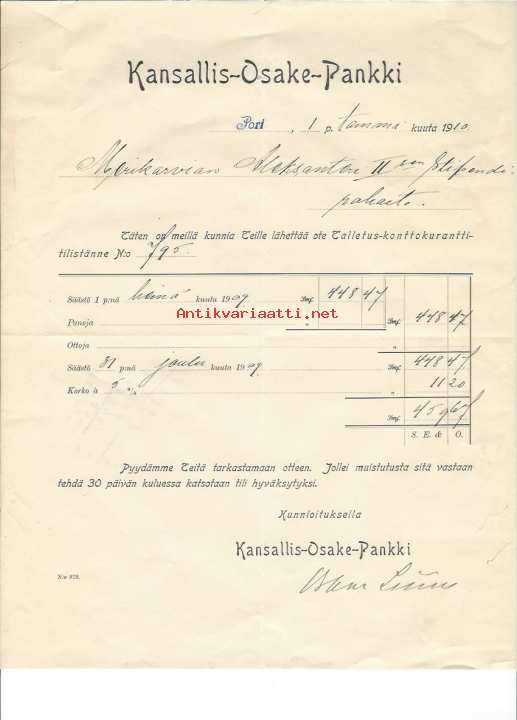 Kansallis-Osake-Pankki
Pori, 1 p. tammi kuuta 1910.
Merikarvian Aleksanteri II sen Stipendi-
rahasto.
Täten on meillä kunnia Teille lähettää ote Talletus-konttokurantti-
tilistänne N:o 795.
Säästö 1 p:nä heinä kuuta 1909 Smf. 448 47
Antikvariaatti.net
Panoja " Smf. 448 47
Ottoja "
Säästö 31 p:nä joulu kuuta 1909. Smf. 448 47
Korko à 5 % " 11 20
Smf. 459 67
S. E. & O.
Pyydämme Teitä tarkastamaan otteen. Jollei muistutusta sitä vastaan
tehdä 30 päivän kuluessa katsotaan tili hyväksytyksi.
Kunnioituksella
Kansallis-Osake-Pankki
N:o 928.